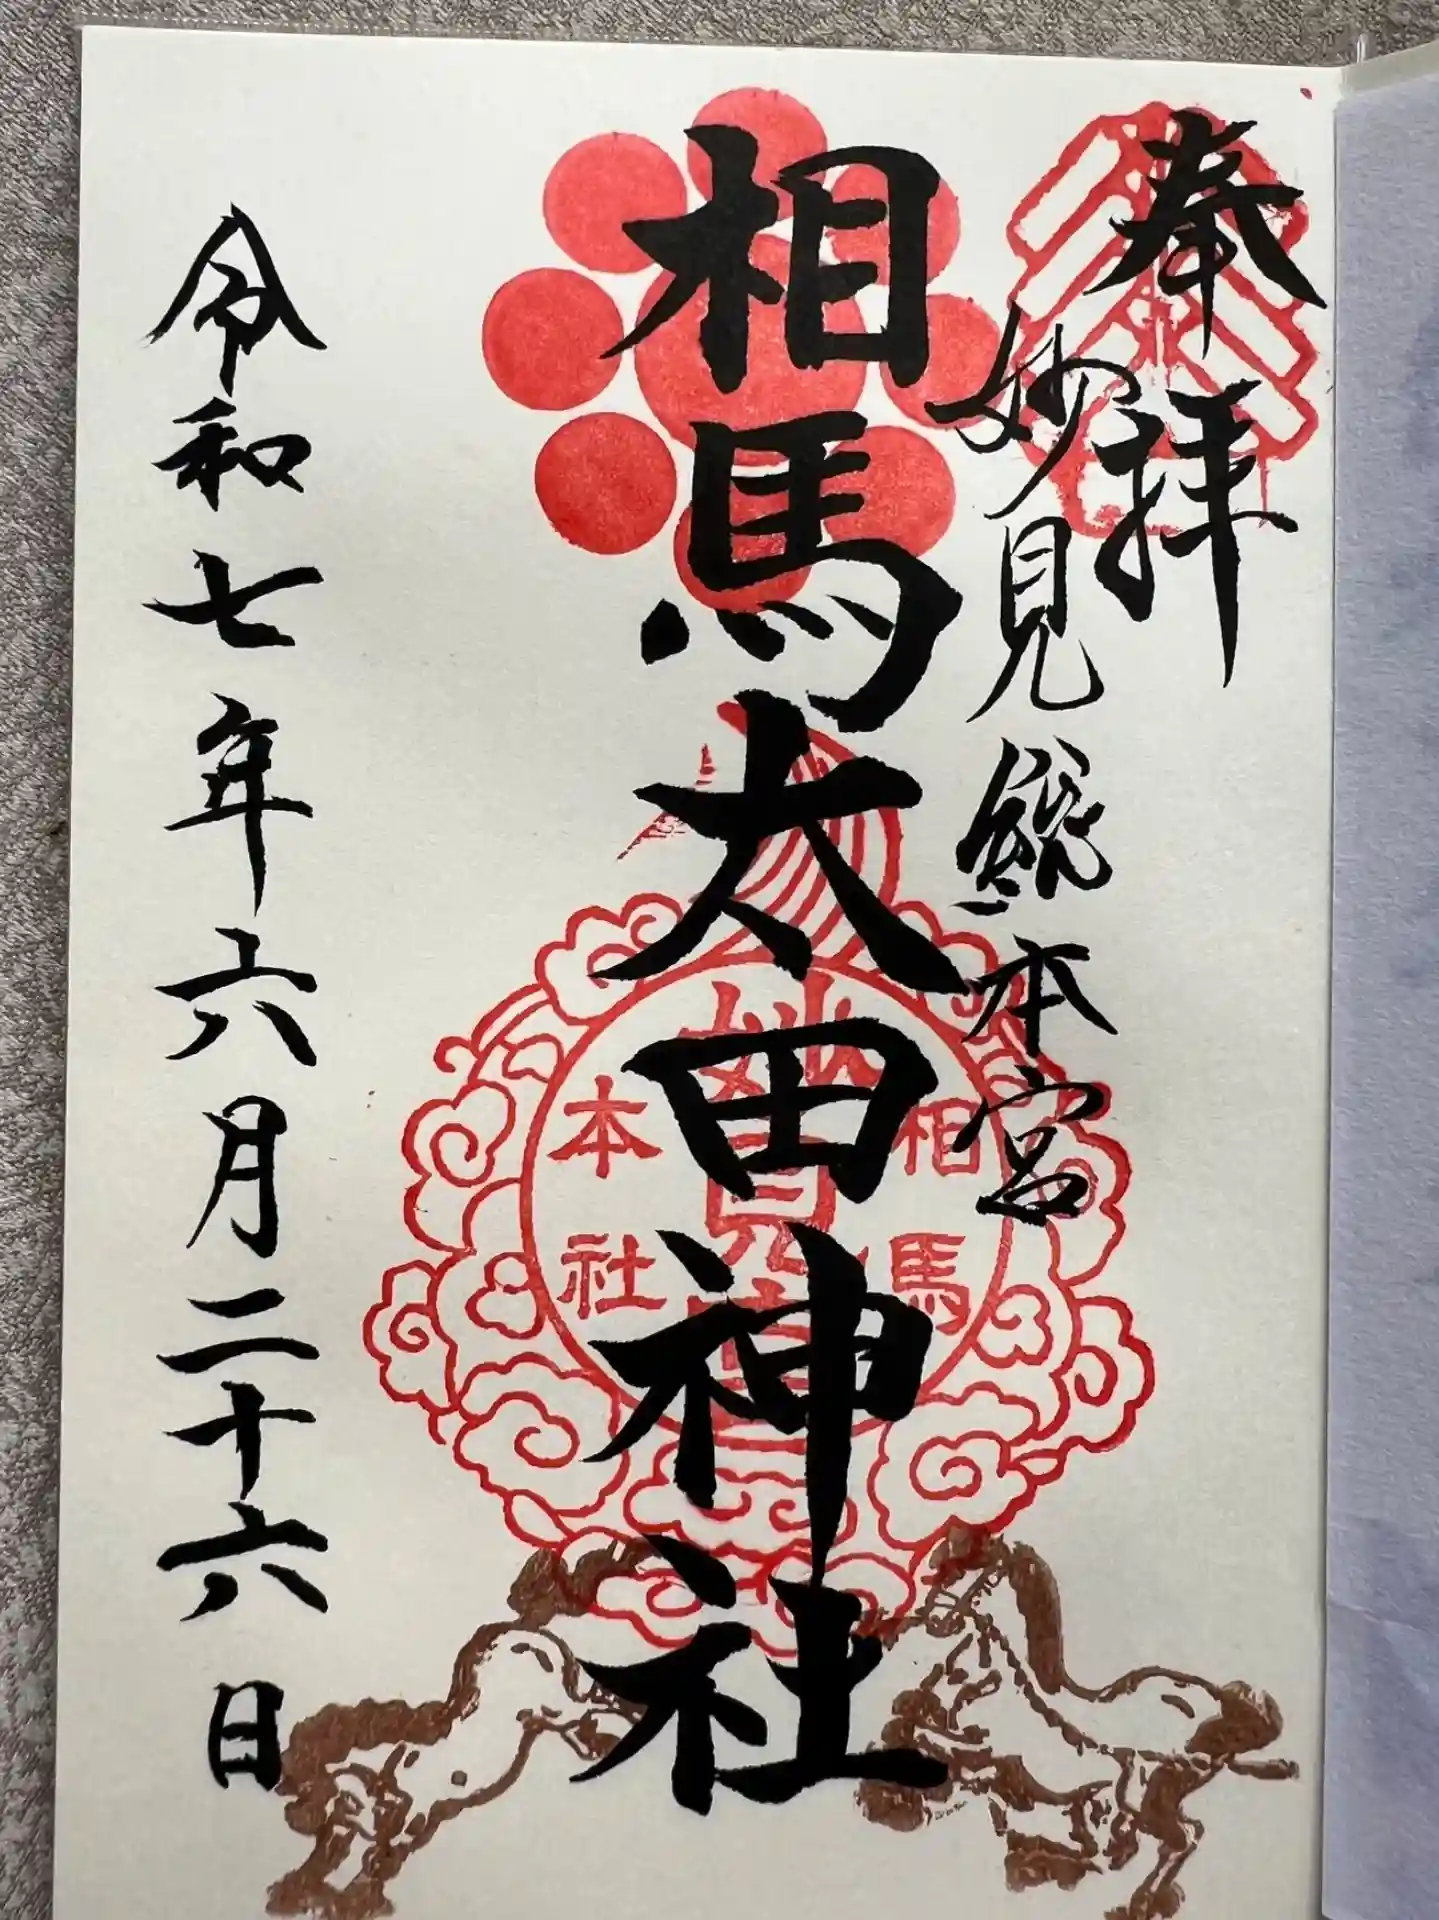 奉拝
妙見総本宮
相馬太田神社
相馬
妙見宮
本社
令和七年六月二十六日